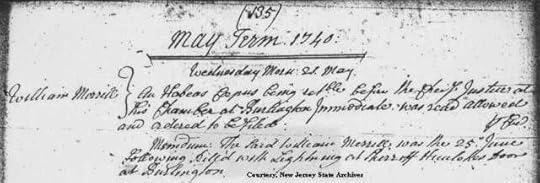 (135)
May Term 1740.
Wednesday Morn: 21. May.
William Morrill } An Habeas Corpus being retble before the Cheif Justice at
His Chamber at Burlington Immediate was read allowed
and ordered to be filed.
Memdum: The said William Morrill was the 25th June
following Kill'd with Lightning at Sherriff Hunlokes door
at Burlington
Courtesy, New Jersey State Archives